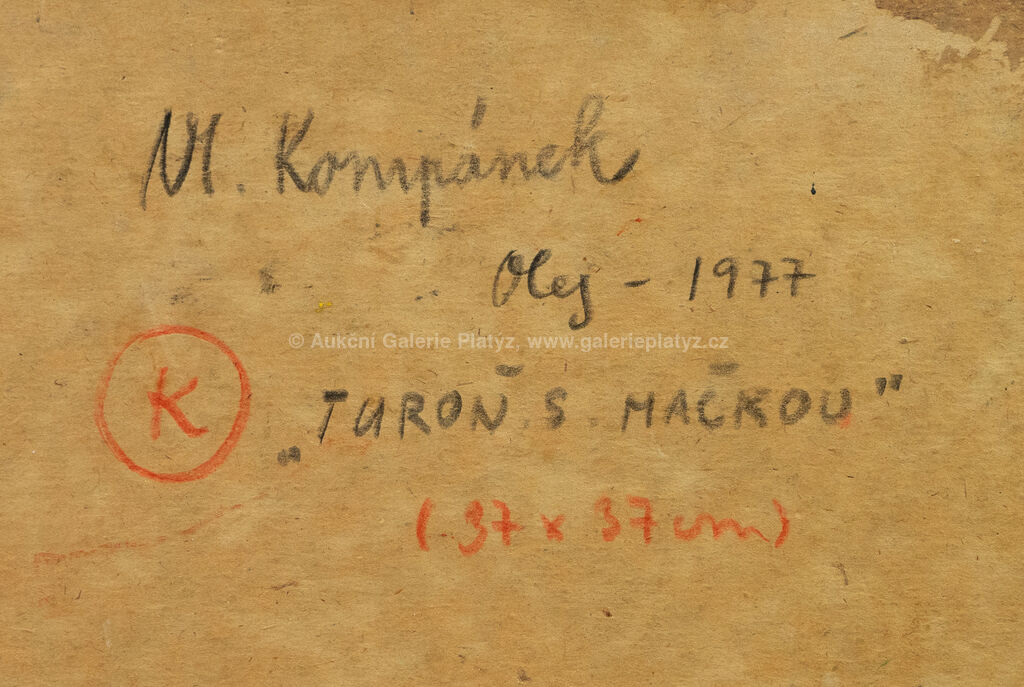 Vl. Kompánek
Olej - 1977
© Aukční Galerie Platýz, www.galerieplatyz.cz
K
„TUROŇ S MAČKOU"
(37 x 37 cm)